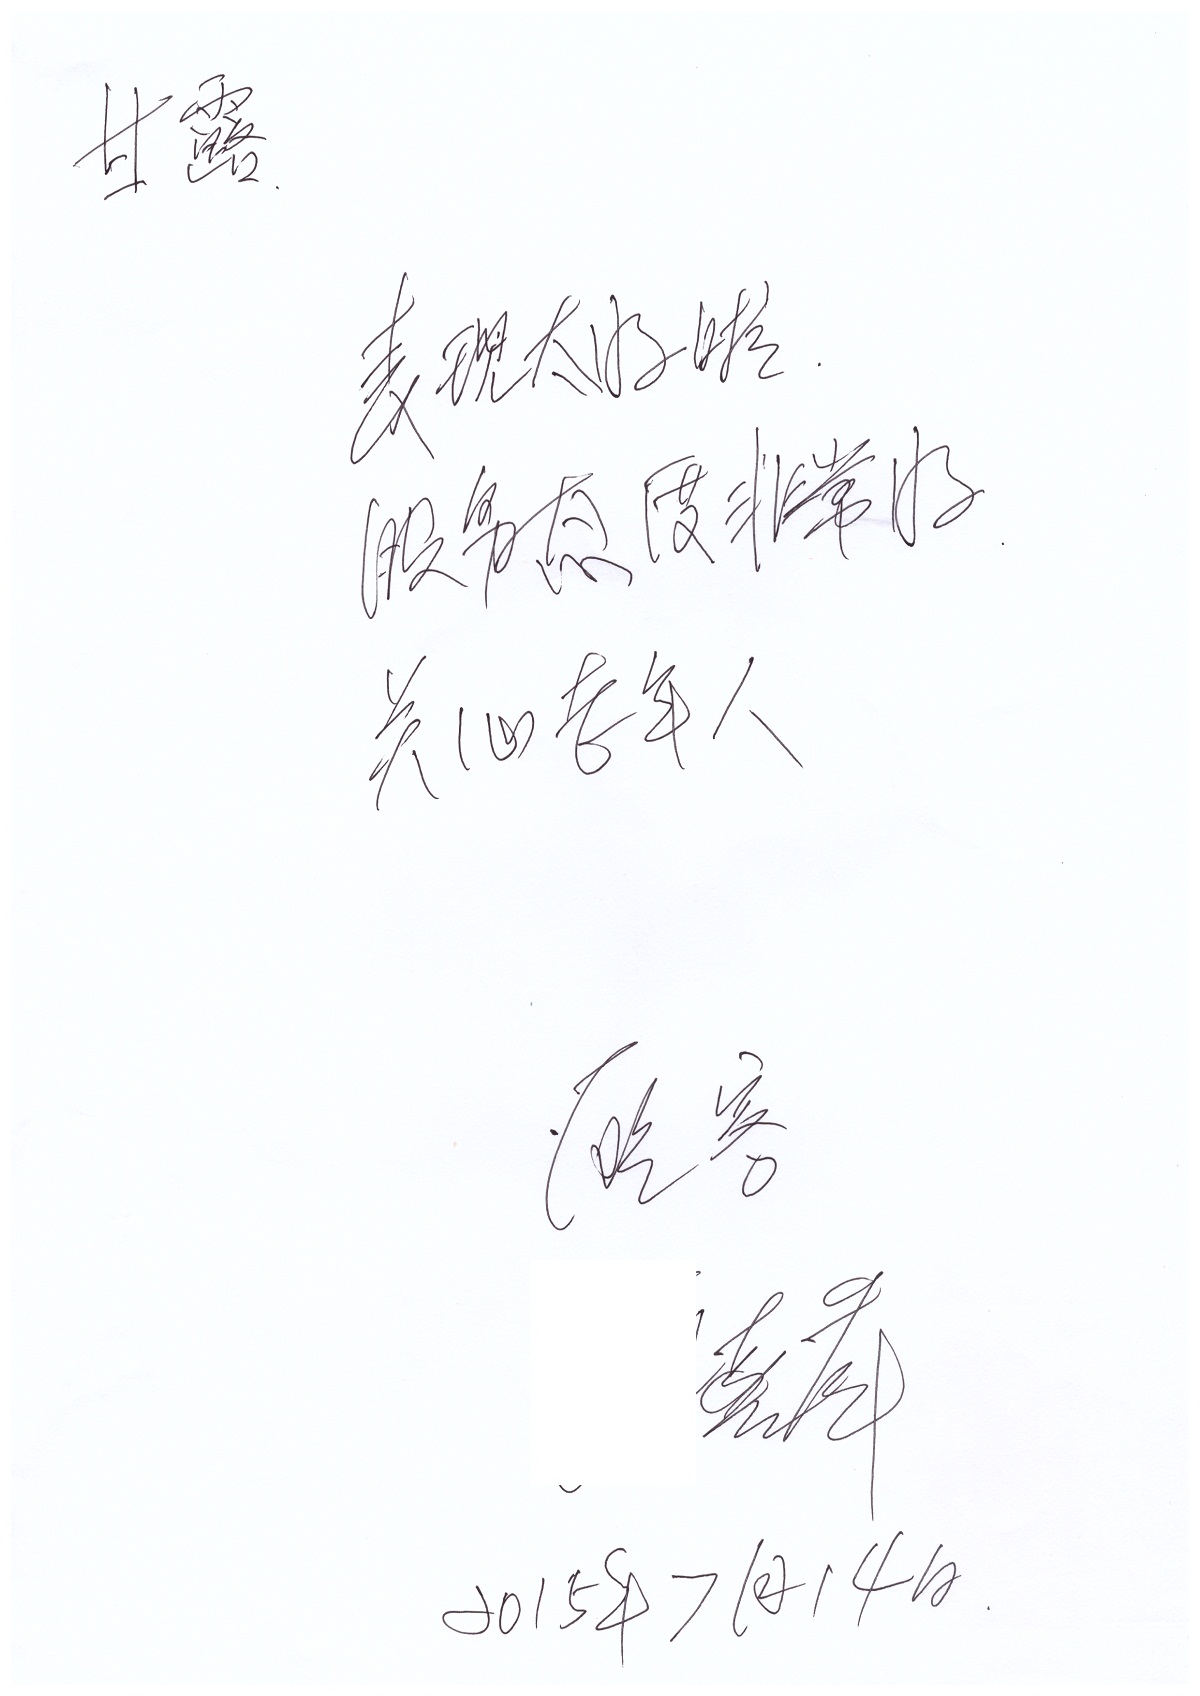 甘露.
表现太好啦.
服务态度非常好.
关心老年人
顾客
2015年7月14日.